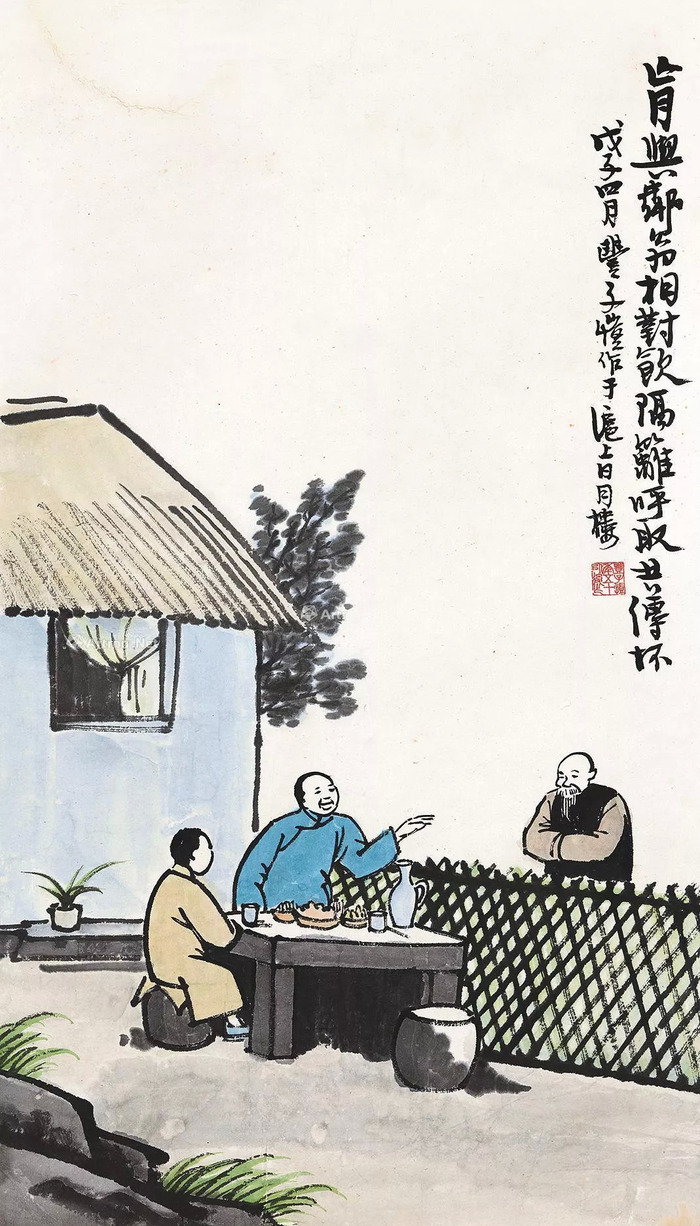 肯與鄰翁相對飲隔籬呼取共傳杯
戊子四月豐子愷作于滬上日月樓